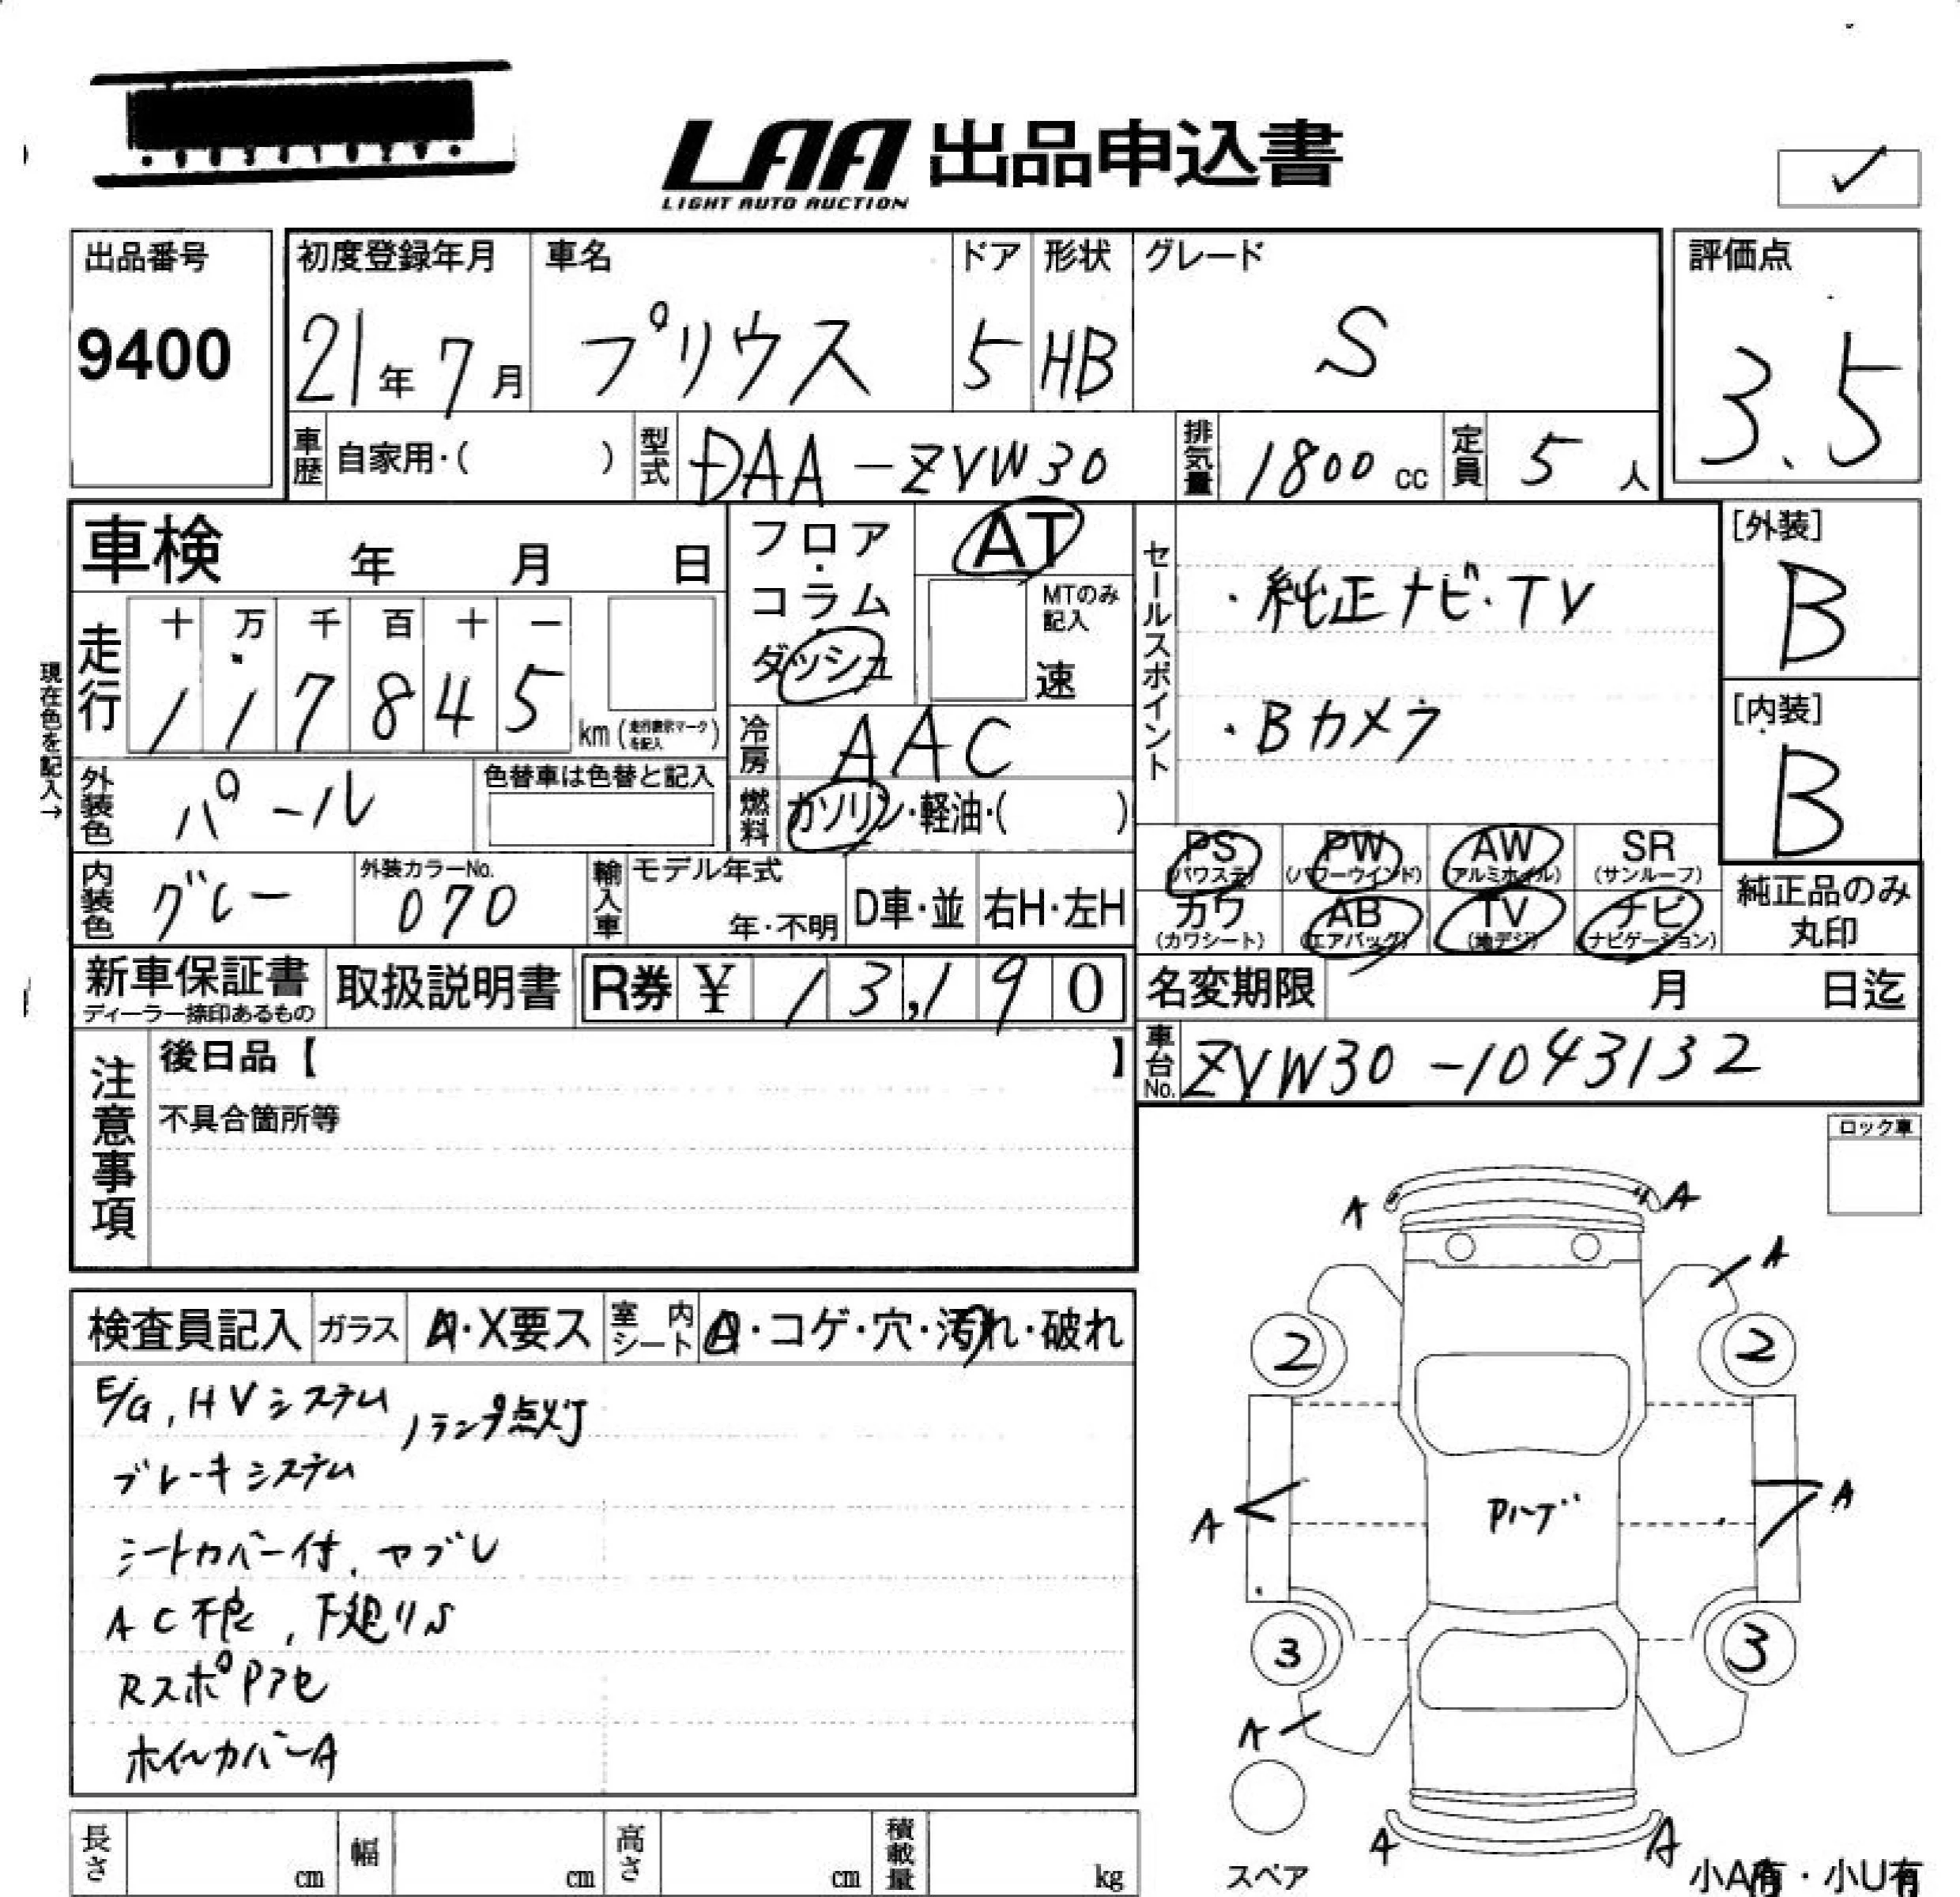 LAA 出品申込書
LIGHT AUTO AUCTION
✓
出品番号
9400
初度登録年月
21年7月
車名
プリウス
ドア
5
形状
HB
グレード
S
評価点
3.5
車歴 自家用・( )
型式 DAA-ZVW30
排気量 1800 cc
定員 5 人
車検 年 月 日
フロア・コラム・ダッシュ
AT
MTのみ記入
速
セールスポイント
・純正ナビ・TV
・Bカメラ
[外装]
B
[内装]
B
現在色を記入→
走行
十 万 千 百 十 一
1 1 7 8 4 5
km (走行表示マークを記入)
冷房 AAC
外装色 パール
色替車は色替と記入
燃料 ガソリン・軽油・( )
内装色 グレー
外装カラーNo.
070
輸入車 モデル年式
年・不明
D車・並
右H・左H
PS (パワステ)
PW (パワーウインド)
AW (アルミホイル)
SR (サンルーフ)
カワ (カワシート)
AB (エアバッグ)
TV (地デジ)
ナビ (ナビゲーション)
純正品のみ丸印
新車保証書
ディーラー捺印あるもの
取扱説明書
R券 ¥ 13,190
名変期限 月 日迄
車台No. ZVW30-1043132
注意事項
後日品【 】
不具合箇所等
ロック車
検査員記入
ガラス A・X要ス
室内シート A・コゲ・穴・汚れ・破れ
E/G, HVシステム
ブレーキシステム
ランプ点灯
シートカバー付、ヤブレ
AC不良, 下廻りS
RスポPアセ
ホイールカバーA
A
A
A
2
2
A
A
Pハゲ
3
3
A
A
A
スペア
小A有・小U有
長さ cm
幅 cm
高さ cm
積載量 kg